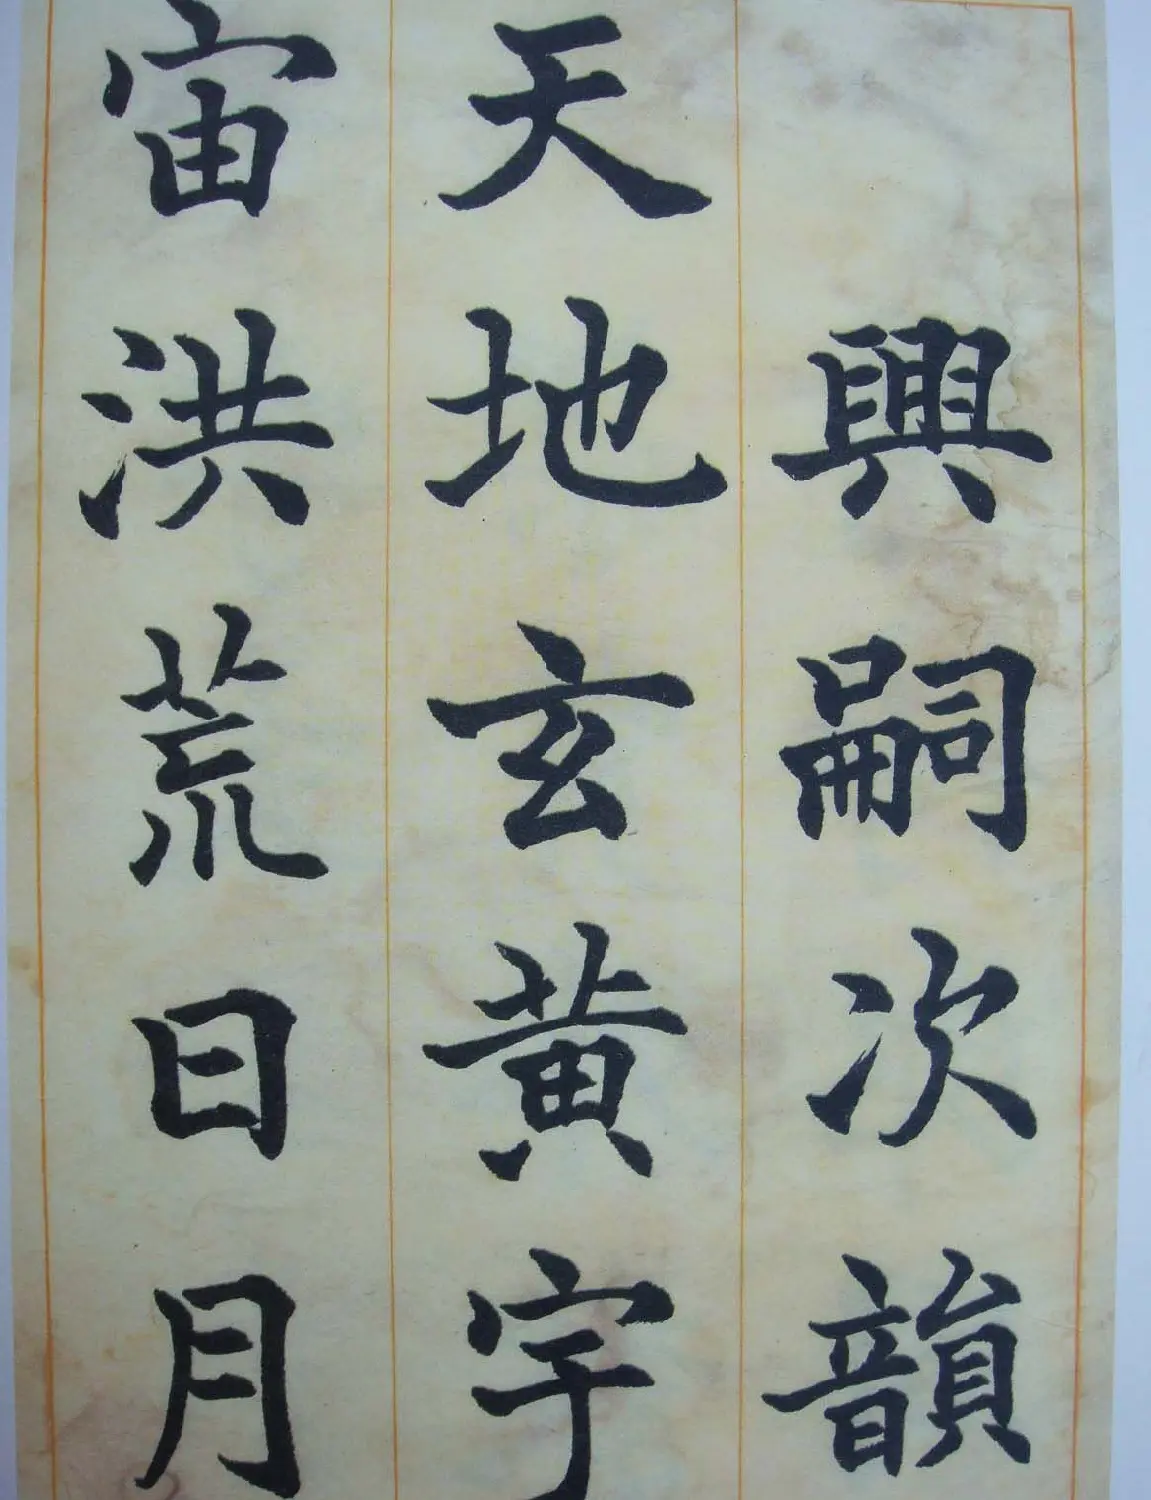 興嗣次韻
天地玄黃宇
宙洪荒日月